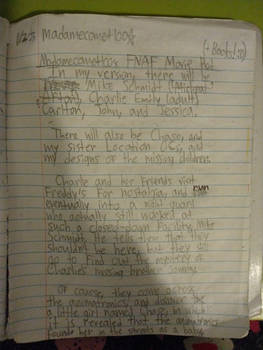 Madamecomet100%
Madamecometxox FNAF Movie
In my version, there will be
Mike Schmidt
Charlie Emily (adult)
Carlton, John, and Jessica.
There will also be Chase, and
my sister Location OCs, and
my designs of the missing children.
Charlie and her friends visit
Freddy's for nostalgia, and run
eventually into a night guard
who, actually still worked at
such a closed-down facility, Mike
Schmidt. He tells them that they
shouldn't be here, but they all
go to find out the mystery of
Charlie's missing brother Sammy.
Of course, they come across
the animatronics, and discover the
a little girl named Chase, in which
it is revealed that the animatronics
found her in the streets as a baby,